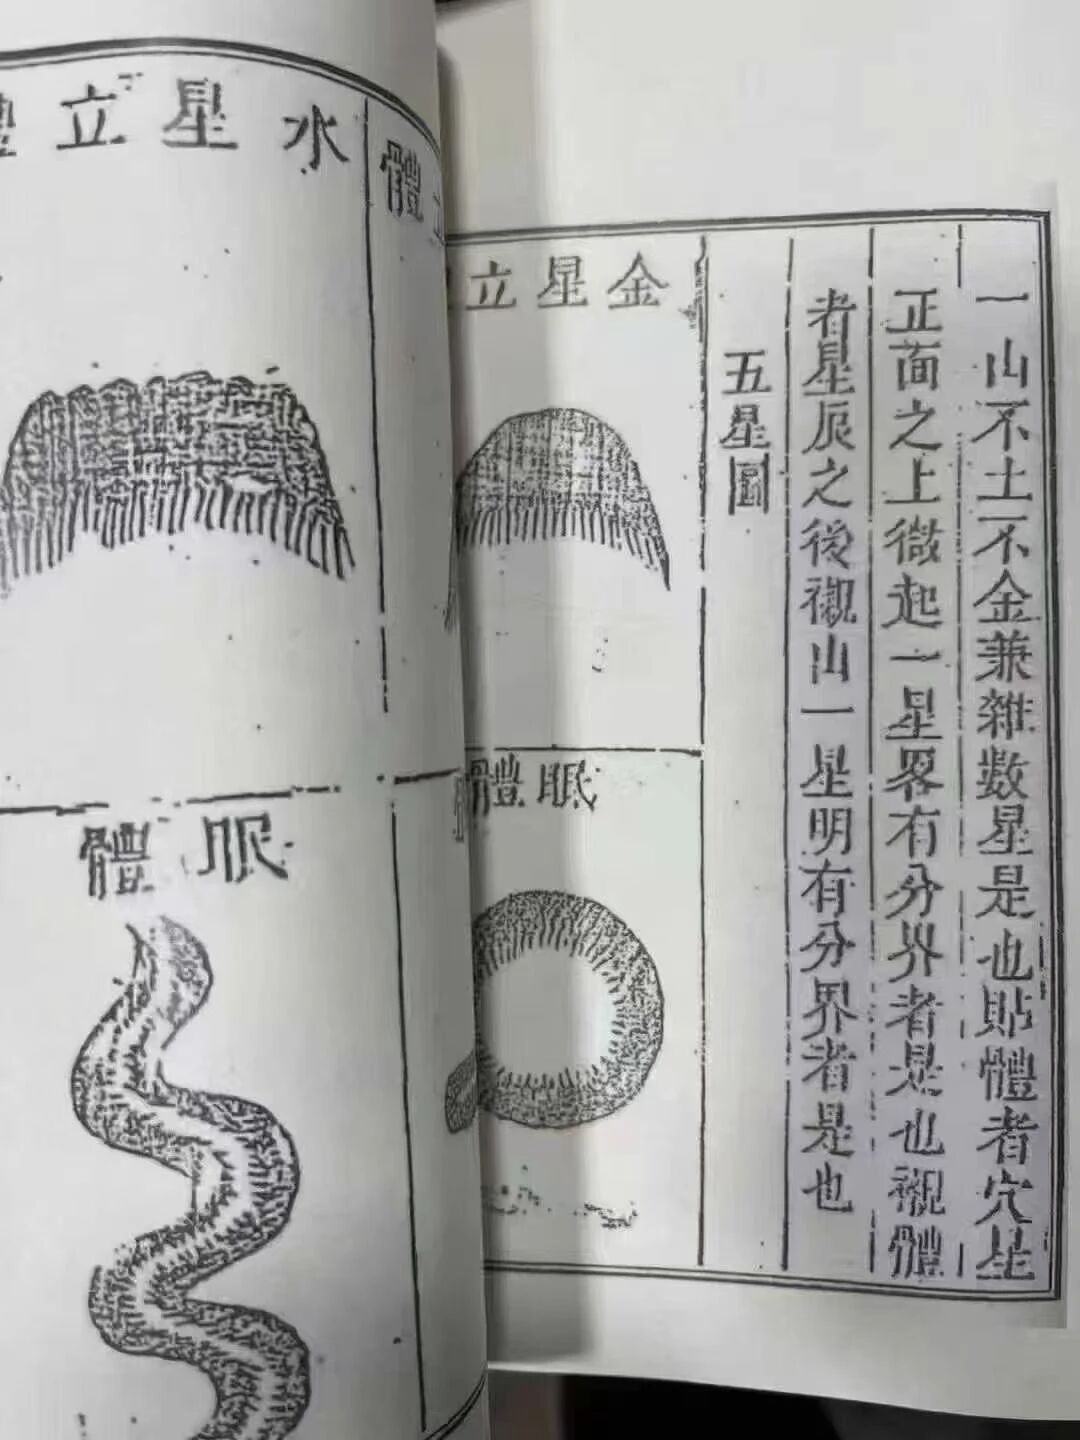 一山不土不金兼雜數星是也貼體者穴星
正面之上微起一星畧有分界者是也襯體
者星辰之後襯山一星明有分界者是也
五星圖
金星立
眠體
體
水星立體
眠體